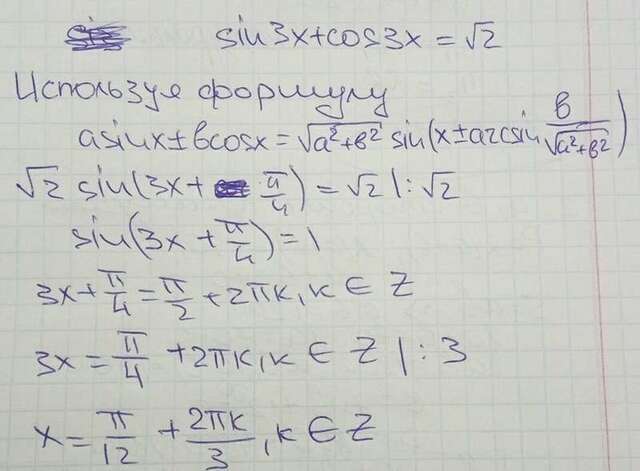 sin3x+cos3x=√2
Используя формулу
asinx±bcosx=√(a²+b²) sin(x±arcsin b/√(a²+b²))
√2 sin(3x+ π/4)=√2 |:√2
sin(3x+π/4)=1
3x+π/4=π/2+2πk,k∈Z
3x=π/4+2πk,k∈Z |:3
x=π/12+2πk/3,k∈Z